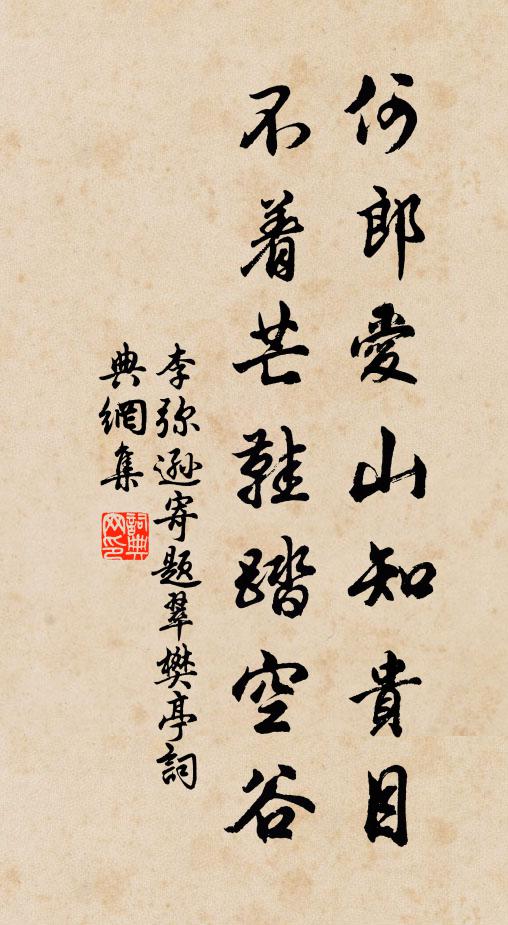 何郎愛山知貴目
不着芒鞋踏空谷
李弥遜寄題翠樊亭詞
典網集
詞典
网印